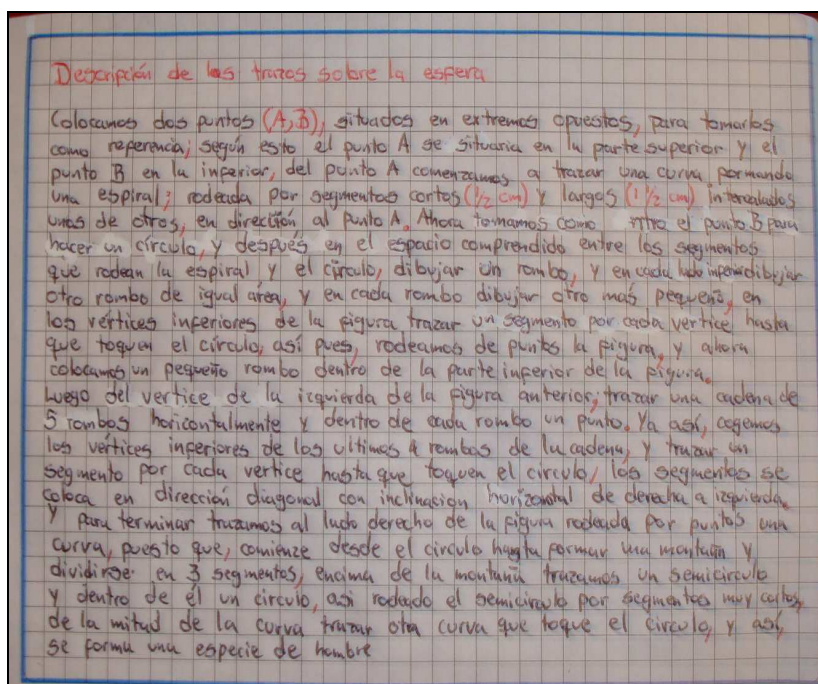 Descripción de los trazos sobre la esfera
Colocamos dos puntos (A,B), situados en extremos opuestos, para tomarlos
como referencia; según esto el punto A se situaria en la parte superior y el
punto B en la inferior, del punto A comenzamos a trazar una curva formando
una espiral; rodeada por segmentos cortos (1/2 cm) y largos (1 1/2 cm) intercalados
unos de otros, en dirección al punto A. Ahora tomamos como ntro el punto B para
hacer un círculo, y después en el espacio comprendido entre los segmentos
que rodean la espiral y el círculo, dibujar un rombo, y en cada lado inferior dibujar
otro rombo de igual área, y en cada rombo dibujar otro más pequeño, en
los vértices inferiores de la figura trazar un segmento por cada vertice hasta
que toquen el círculo, así pues, rodeamos de puntos la figura, y ahora
colocamos un pequeño rombo dentro de la parte inferior de la figura.
Luego del vertice de la izquierda de la figura anterior; trazar una cadena de
5 rombos horicontalmente y dentro de cada rombo un punto. Ya así, cogemos
los vértices inferiores de los ultimos 4 rombos de la cadena, y trazar un
segmento por cada vertice hasta que toquen el círculo, los segmentos se
coloca en dirección diagonal con inclinación horizontal de derecha a izquierda.
Y para terminar trazamos al lado derecho de la figura rodeada por puntos una
curva, puesto que, comienze desde el circulo hasta formar una montaña y
dividirse en 3 segmentos, encima de la montaña trazamos un semicirculo
y dentro de él un circulo, asi rodeado el semicirculo por segmentos muy cortos,
de la mitad de la curva trazar otra curva que toque el circulo, y así,
se forma una especie de hombre